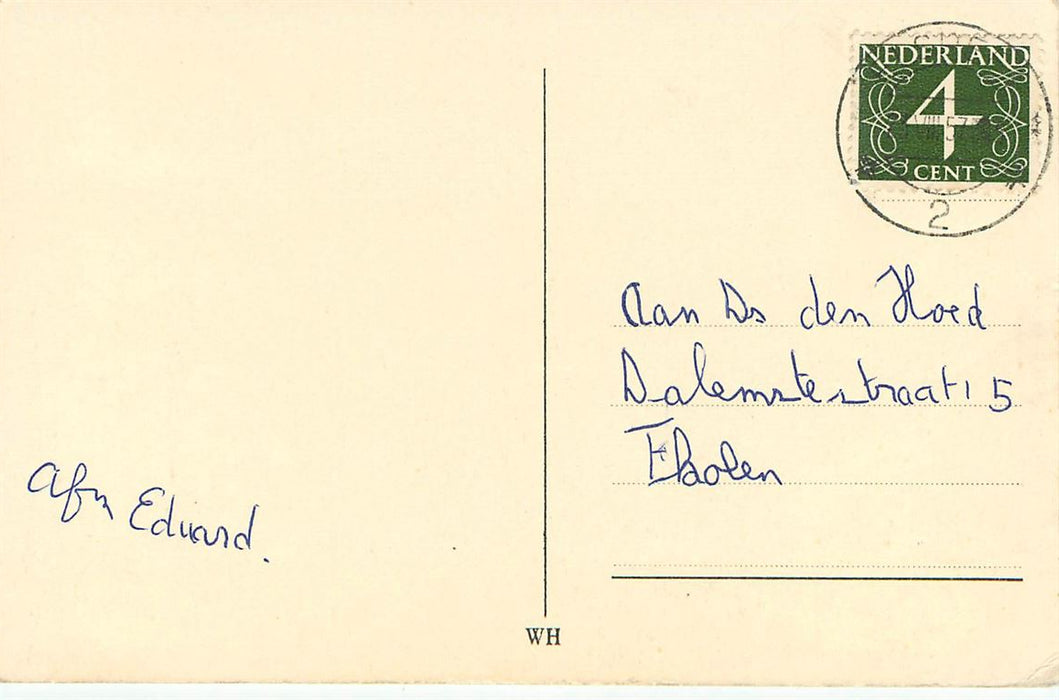 NEDERLAND
4
CENT
2
Aan Ds den Hoed
Dalemstestraat 5
Afz Eduard.
WH